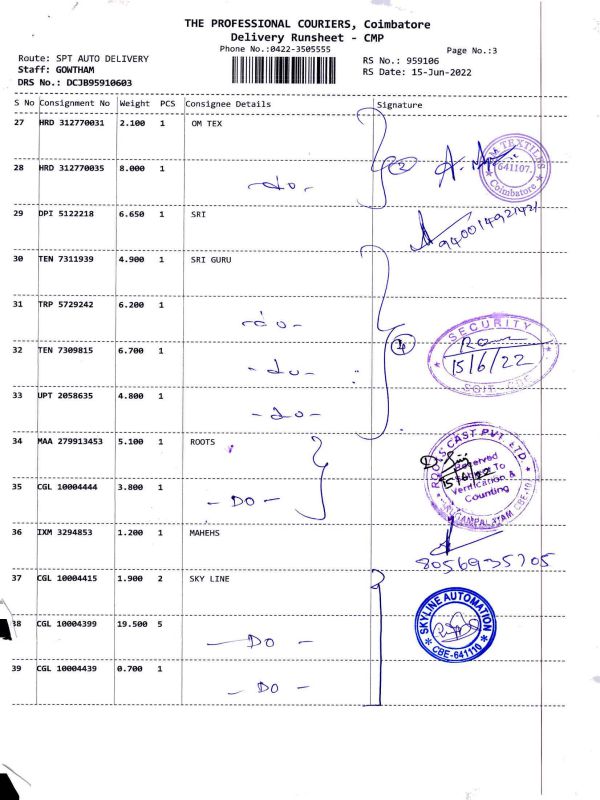 THE PROFESSIONAL COURIERS, Coimbatore
Delivery Runsheet - CMP
Phone No.:0422-3505555
Page No.:3
Route: SPT AUTO DELIVERY
RS No.: 959106
Staff: GOWTHAM
RS Date: 15-Jun-2022
DRS No.: DCJB95910603
S No Consignment No Weight PCS Consignee Details Signature
27 HRD 312770031 2.100 1 OM TEX
28 HRD 312770035 8.000 1
- do - 2
TEXTILES 641107. Coimbatore
29 DPI 5122218 6.650 1 SRI
30 TEN 7311939 4.900 1 SRI GURU
31 TRP 5729242 6.200 1
- do -
SECURITY
15/6/22
32 TEN 7309815 6.700 1
- do - 4
33 UPT 2058635 4.800 1
- do -
34 MAA 279913453 5.100 1 ROOTS
ROOTS CAST PVT. LTD.
Received
To
Verification &
Counting
35 CGL 10004444 3.800 1
- DO -
36 IXM 3294853 1.200 1 MAHEHS
8056935705
37 CGL 10004415 1.900 2 SKY LINE
38 CGL 10004399 19.500 5
- DO -
SKYLINE AUTOMATION
CBE-641110
39 CGL 10004439 0.700 1
- DO -